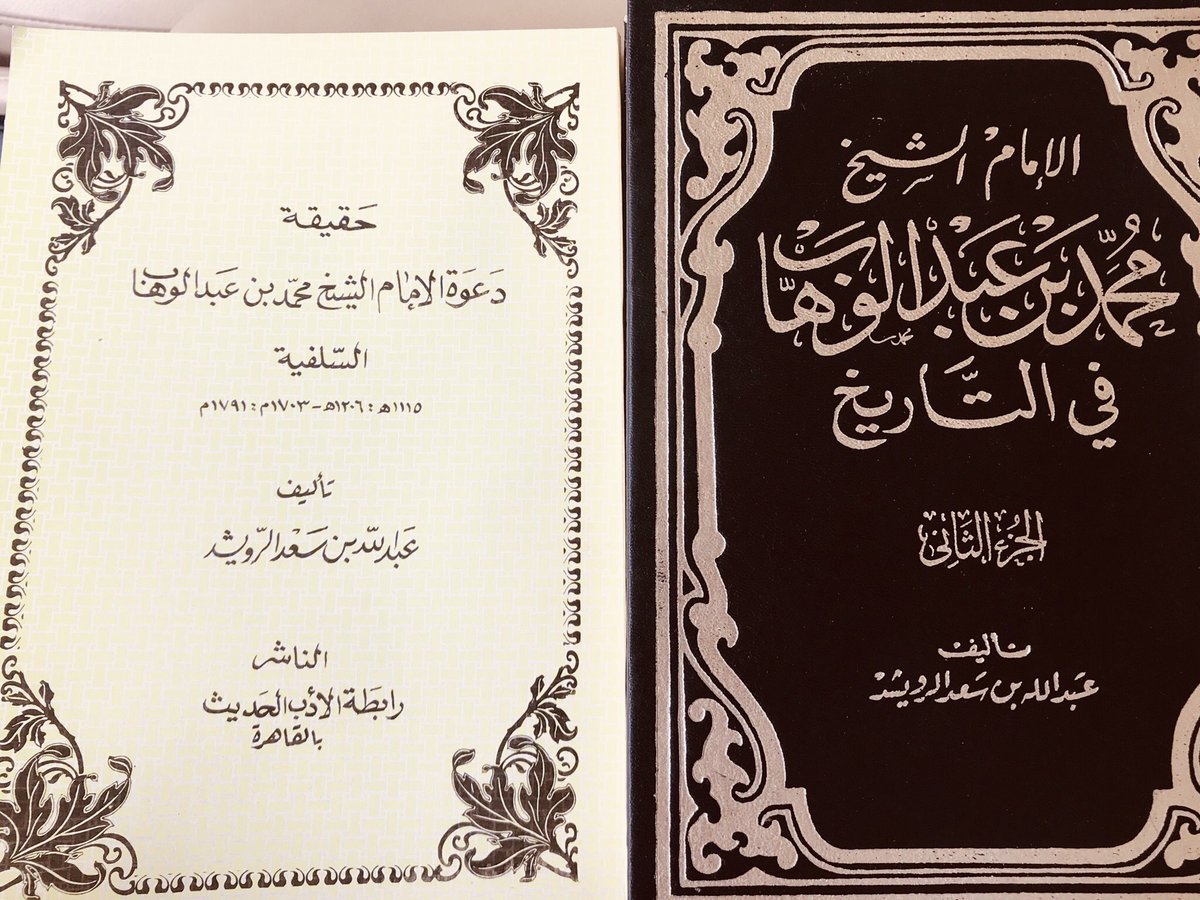 حَقيقة
دَعوَة الإمَام الشيخ محمّد بن عَبدالوهاب
السّلفية
١١١٥هـ : ١٢٠٦هـ - ١٧٠٣م : ١٧٩١م
تأليف
عَبدالله بن سَعد الرّويشد
الناشر
رابطَة الأدب الحَديث
بالقاهرة
الإمام الشيخ
مُحَمَّد بَن عَبْد الوَهاب
في التَّاريخ
الجُزء الثَّاني
تأليف
عَبدالله بن سَعد الرويشد